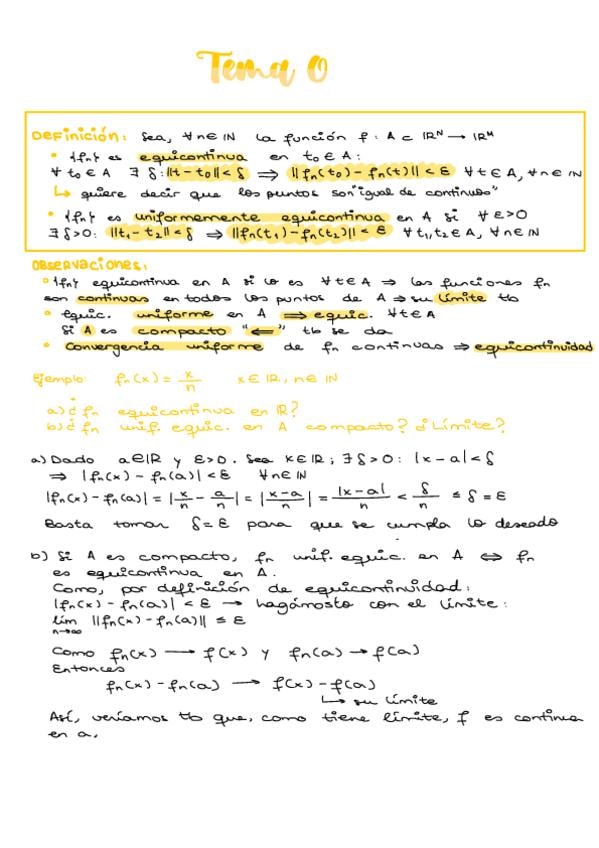 Tema 0
Definición: Sea, ∀n∈IN la función f: A ⊂ IR^N → IR^M
• {fn} es equicontinua en t₀∈A:
∀ t₀∈A ∃ δ: ||t-t₀||<δ ⇒ ||fn(t₀)-fn(t)||<ε ∀t∈A, ∀n∈IN
↳ quiere decir que los puntos son "igual de continuos"
• {fn} es uniformemente equicontinua en A si ∀ε>0
∃δ>0: ||t₁-t₂||<δ ⇒ ||fn(t₁)-fn(t₂)||<ε ∀t₁,t₂∈A, ∀n∈IN
Observaciones:
• {fn} equicontinua en A si lo es ∀t∈A ⇒ las funciones fn
son continuas en todos los puntos de A ⇒ su límite tb
• Equic. uniforme en A ⇒ equic. ∀t∈A
Si A es compacto "⇐" tb se da
• Convergencia uniforme de fn continuas ⇒ equicontinuidad
Ejemplo: fn(x) = x/n x∈IR, n∈IN
a) ¿ fn equicontinua en IR?
b) ¿ fn unif. equic. en A compacto? ¿Límite?
a) Dado a∈IR y ε>0. Sea x∈IR; ∃δ>0: |x-a|<δ
⇒ |fn(x)-fn(a)|<ε ∀n∈IN
|fn(x)-fn(a)| = |x/n - a/n| = |x-a/n| = |x-a|/n < δ/n ≤ δ = ε
Basta tomar δ=ε para que se cumpla lo deseado
b) Si A es compacto, fn unif. equic. en A ⇔ fn
es equicontinua en A.
Como, por definición de equicontinuidad:
|fn(x)-fn(a)| < ε → hagámoslo con el límite:
lím n→∞ ||fn(x)-fn(a)|| ≤ ε
Como fn(x) → f(x) y fn(a) → f(a)
Entonces
fn(x)-fn(a) → f(x)-f(a)
↳ su límite
Así, veríamos tb que, como tiene límite, f es continua
en a.